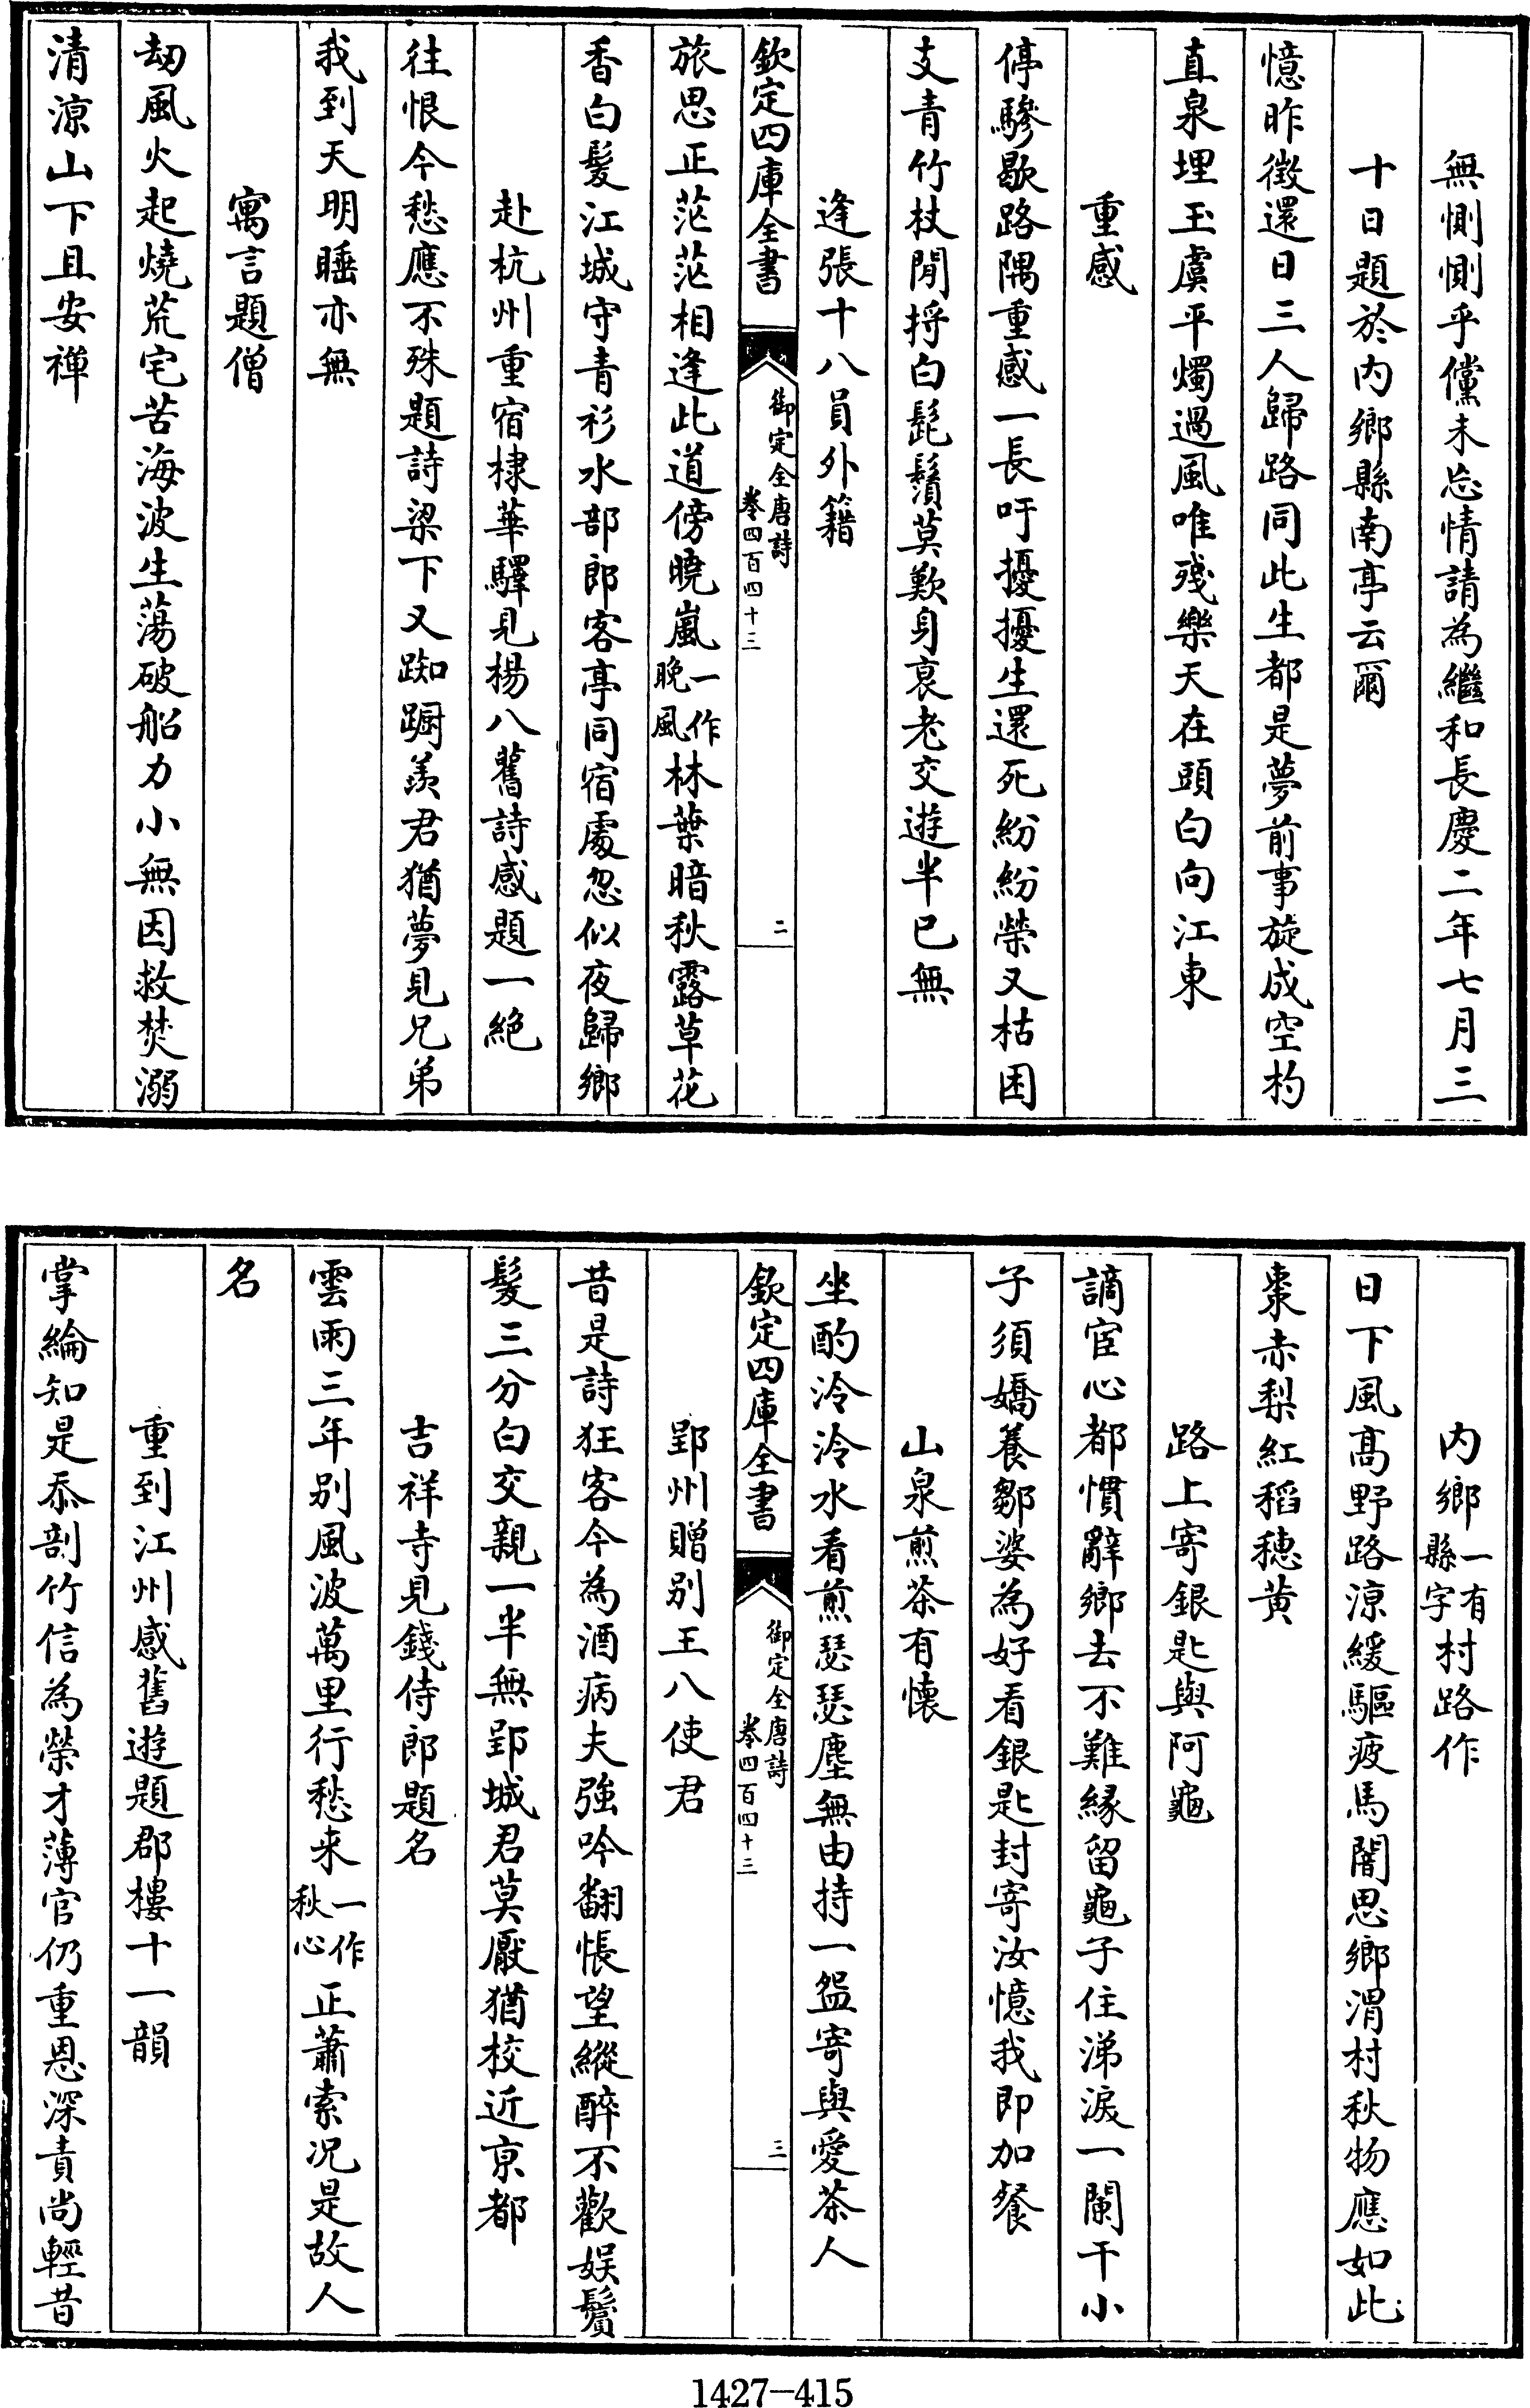 無惻惻乎儻未忘情請為繼和長慶二年七月三
十日題於内鄉縣南亭云爾
憶昨徵還日三人歸路同此生都是夢前事旋成空杓
直泉埋玉虞平燭過風唯殘樂天在頭白向江東
重感
停驂歇路隅重感一長吁擾擾生還死紛紛榮又枯困
支青竹杖閒捋白髭鬚莫歎身衰老交遊半已無
逢張十八員外籍
欽定四庫全書
御定全唐詩
卷四百四十三
二
旅思正茫茫相逢此道傍曉嵐一作晚風林葉暗秋露草花
香白髮江城守青衫水部郎客亭同宿處忽似夜歸鄉
赴杭州重宿棣華驛見楊八舊詩感題一絶
往恨今愁應不殊題詩梁下又踟蹰羨君猶夢見兄弟
我到天明睡亦無
寓言題僧
劫風火起燒荒宅苦海波生蕩破船力小無因救焚溺
清涼山下且安禪
内鄉一有縣字村路作
日下風高野路涼緩驅疲馬闇思鄉渭村秋物應如此
棗赤梨紅稻穗黄
路上寄銀匙與阿龜
謫宦心都慣辭鄉去不難緣留龜子住涕淚一闌干小
子須嬌養鄒婆為好看銀匙封寄汝憶我即加餐
山泉煎茶有懷
坐酌泠泠水看煎瑟瑟塵無由持一盌寄與愛茶人
欽定四庫全書
御定全唐詩
卷四百四十三
三
郢州贈别王八使君
昔是詩狂客今為酒病夫強吟翻悵望縱醉不歡娱鬢
髪三分白交親一半無郢城君莫厭猶校近京都
吉祥寺見錢侍郎題名
雲雨三年别風波萬里行愁来一作秋心正蕭索况是故人
名
重到江州感舊遊題郡樓十一韻
掌綸知是忝剖竹信為榮才薄官仍重恩深責尚輕昔
1427-415